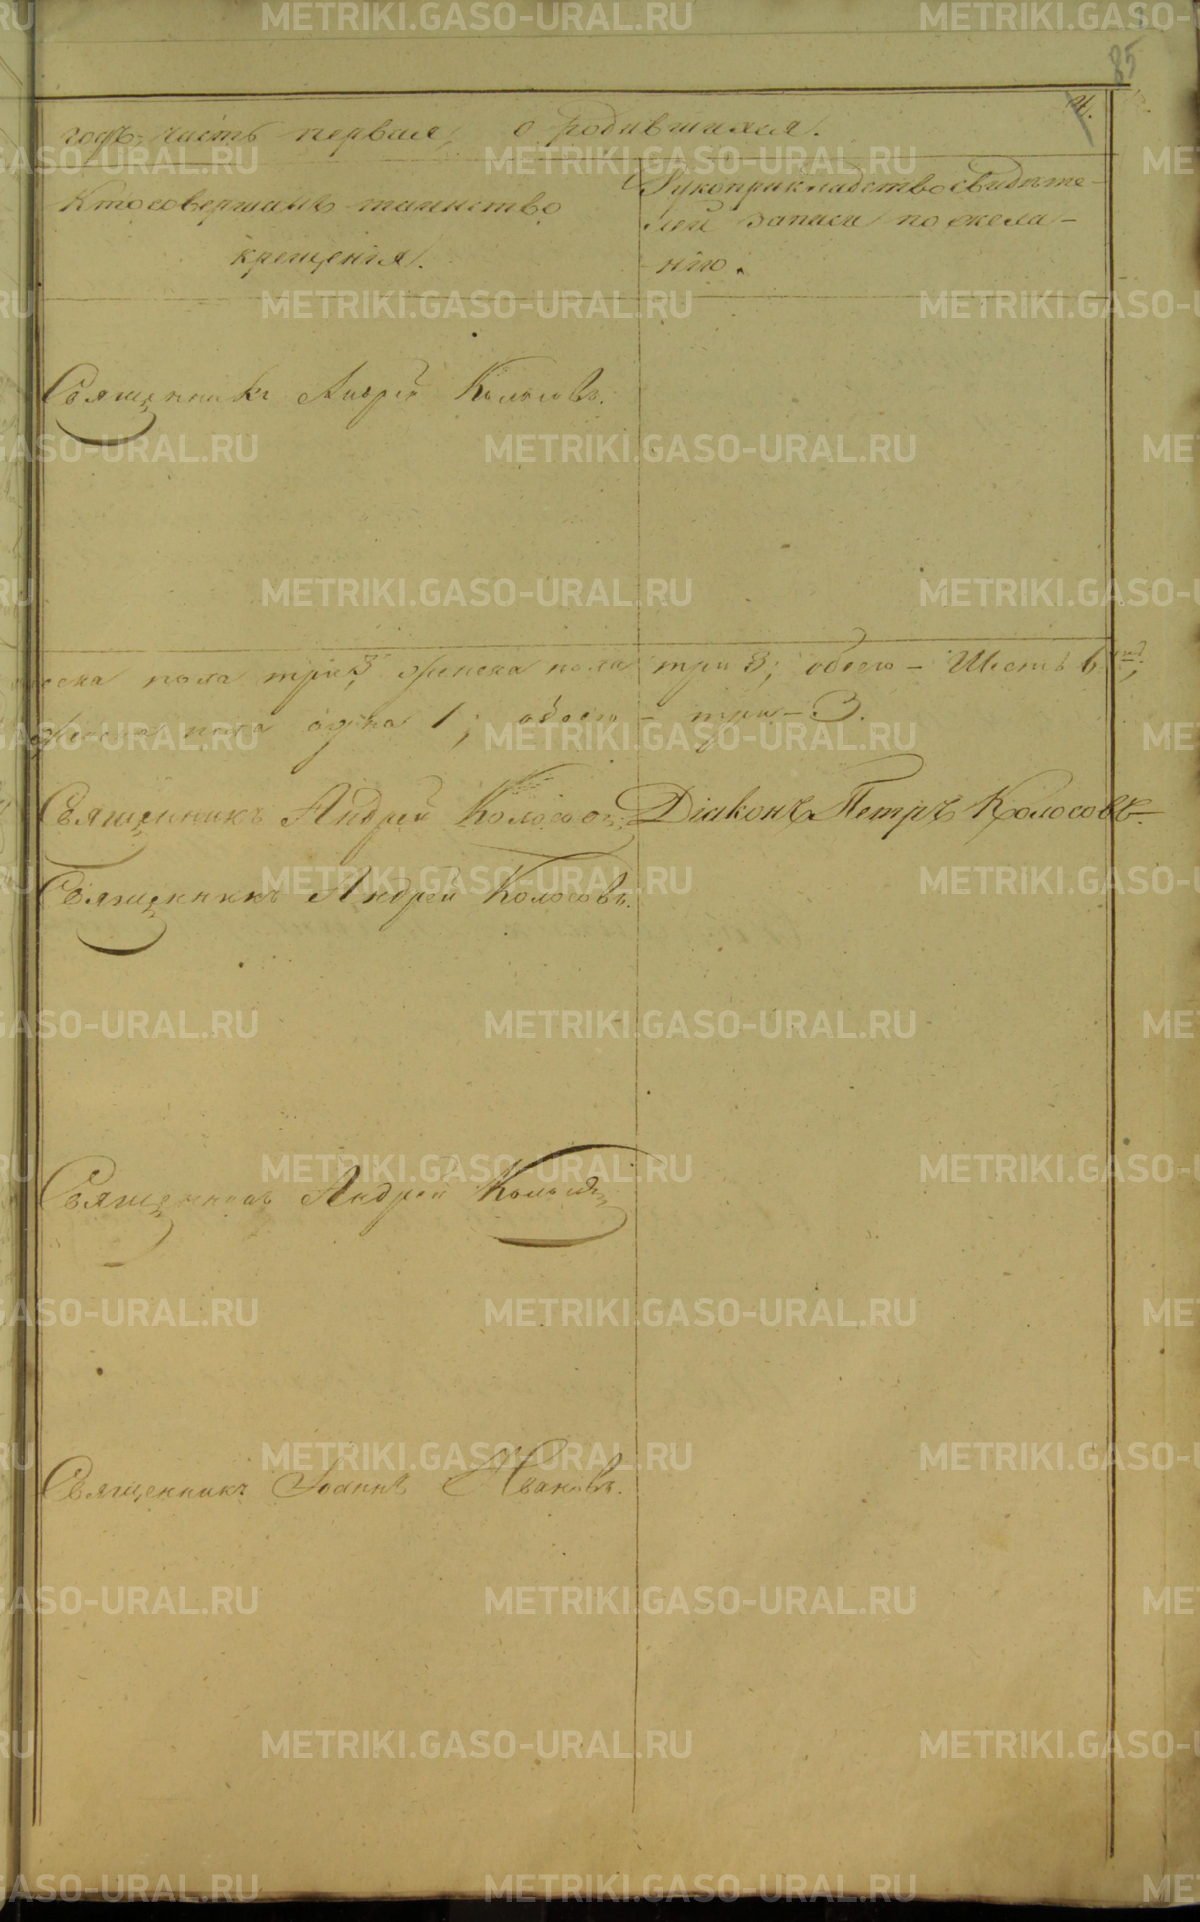 85
4.
годъ, часть первая, о родившихся.
Кто совершалъ таинство
крещенія.
Рукоприкладство свидѣте-
лей записи по жела-
нію.
Священникъ Андрей Колосовъ.
пола три 3, женска пола три 3; обоего – Шесть 6.
пола одна 1; обоего – три – 3.
Священникъ Андрей Колосовъ. Діаконъ Петръ Колосовъ.
Священникъ Андрей Колосовъ.
Священникъ Андрей Колосовъ
Священникъ Іоаннъ Ивановъ.
METRIKI.GASO-URAL.RU